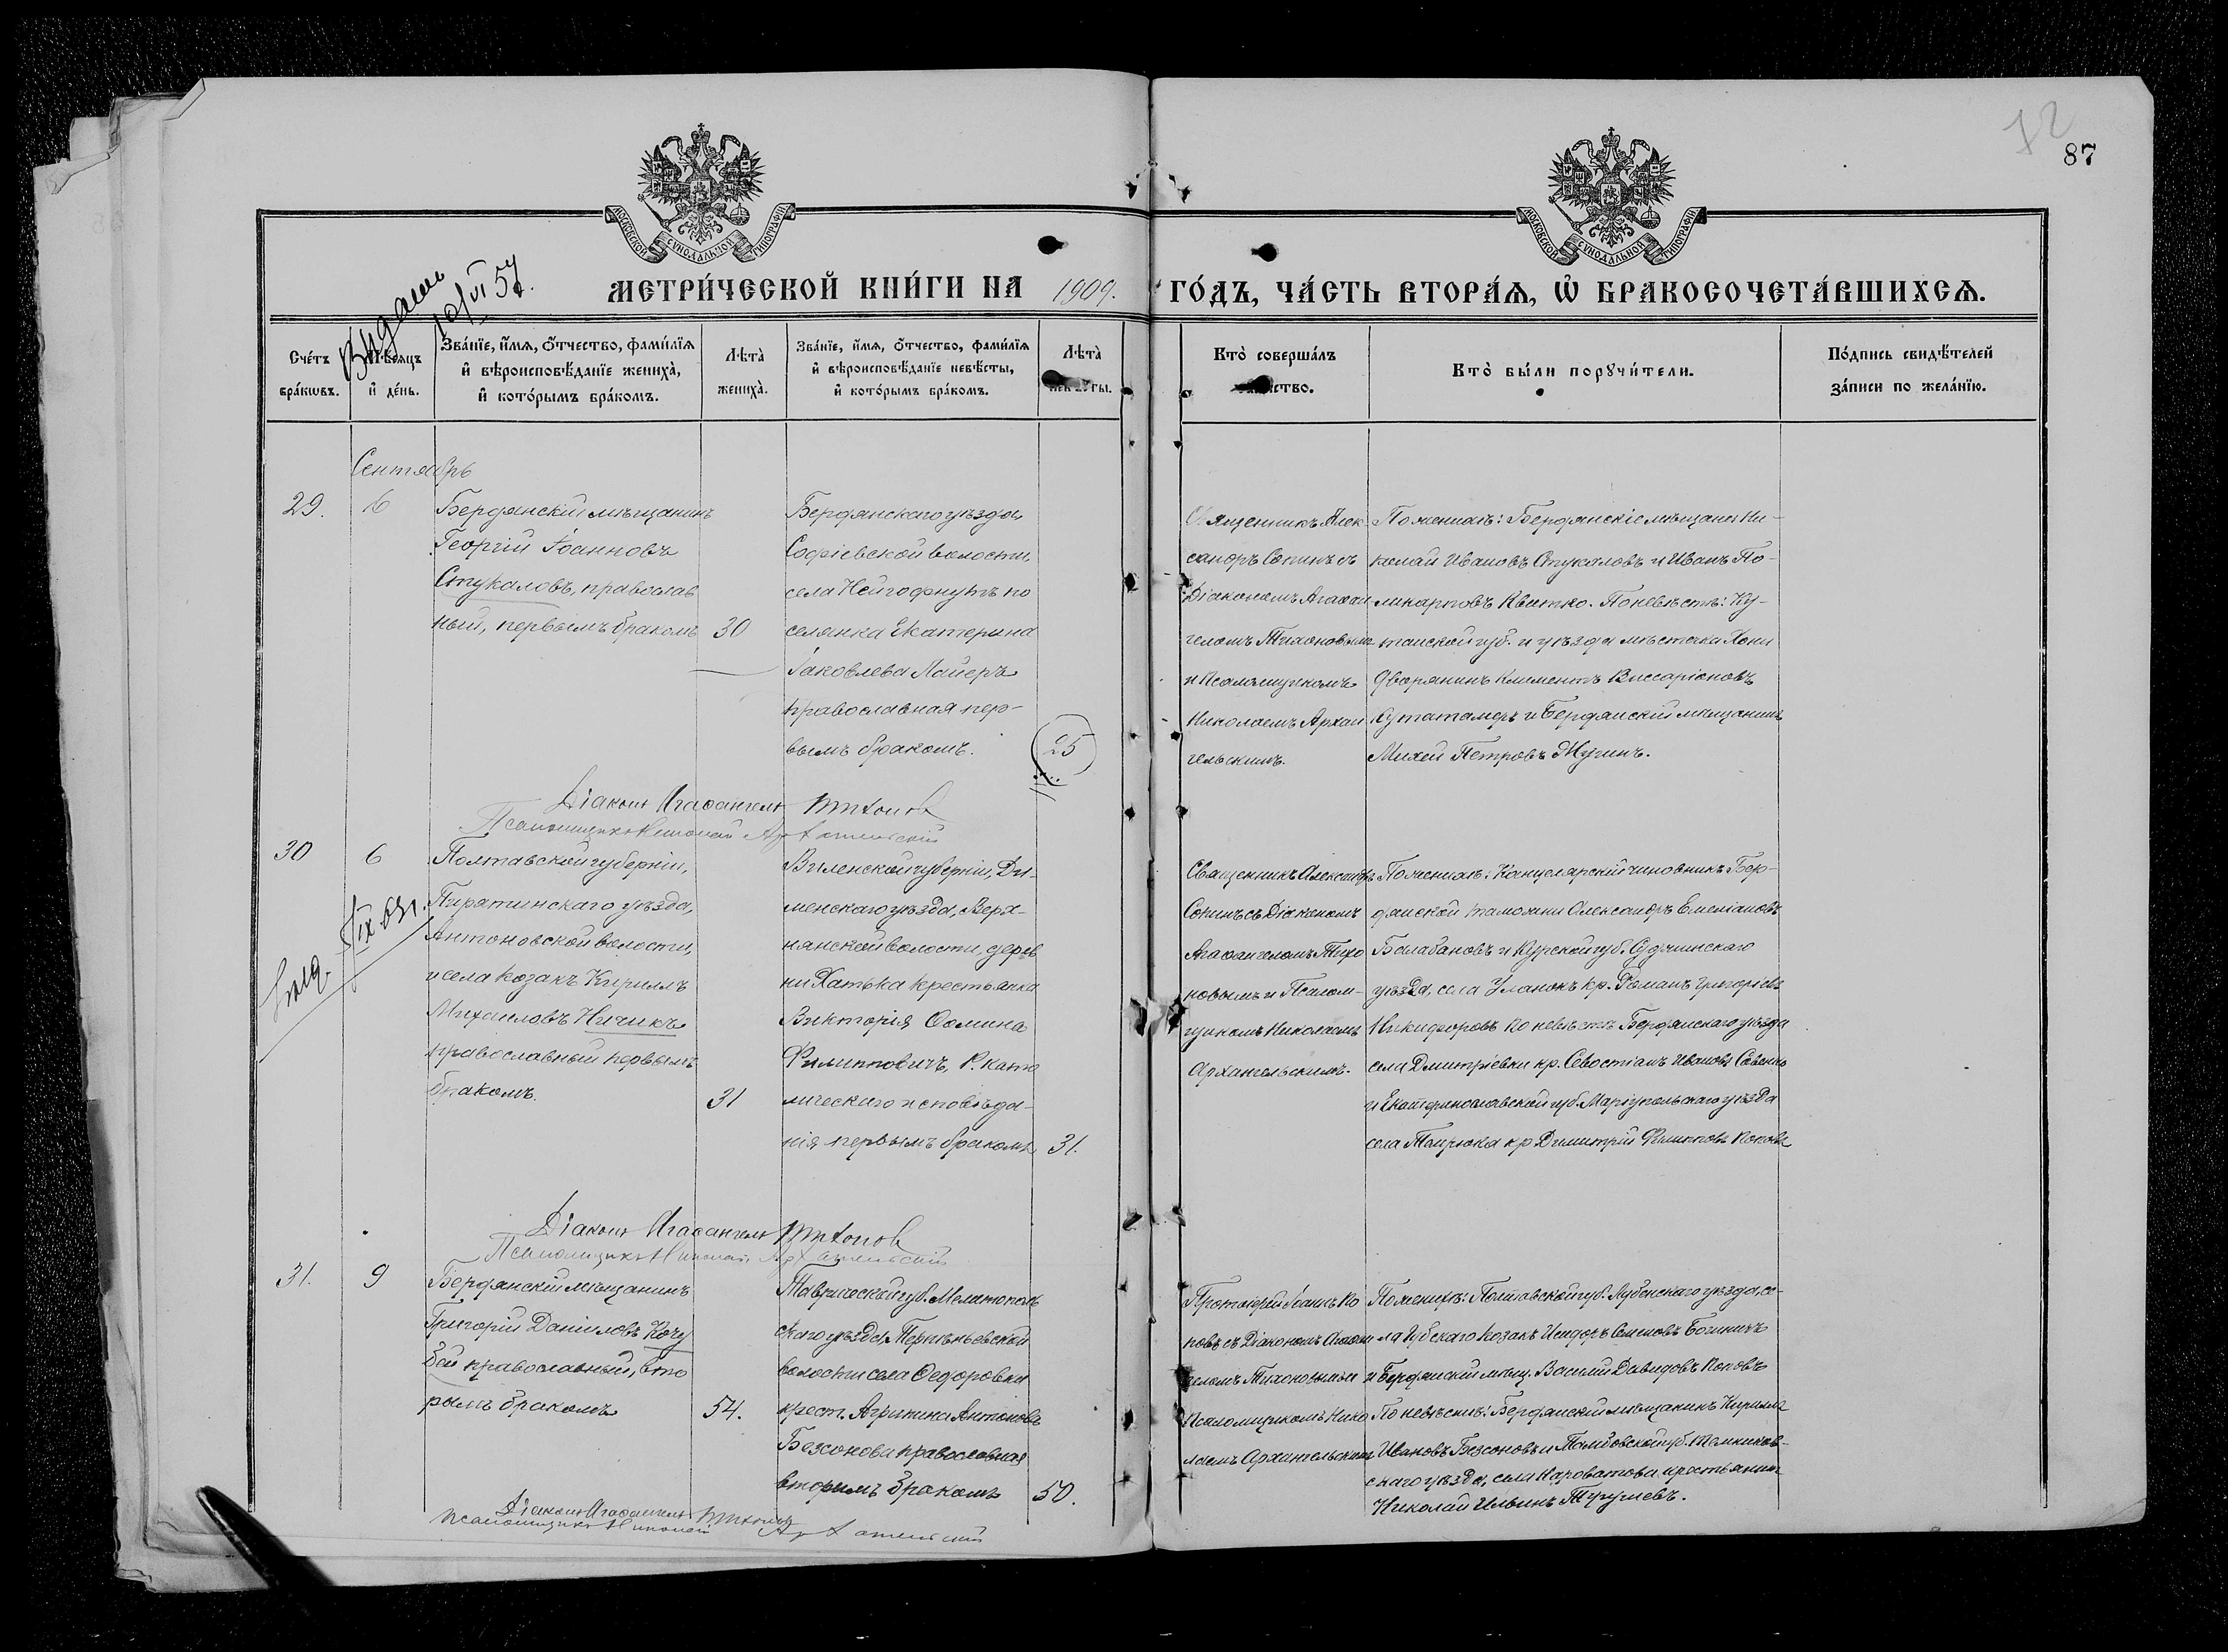 12
87
МОСКОВСКОЙ СУНОДАЛЬНОЙ ТИПОГРАФІИ
МОСКОВСКОЙ СУНОДАЛЬНОЙ ТИПОГРАФІИ
Видано
10/VI 57.
МЕТРИ́ЧЕСКОЙ КНИ́ГИ НА 1909. ГО́ДЪ, ЧА́СТЬ ВТОРА́Я, Ѡ҆ БРАКОСОЧЕТА́ВШИХСЯ.
Сче́тъ бра́кѡвъ.
Мѣ́сяцъ и҆ де́нь.
Зва́нїе, и҆́мя, о҆́тчество, фами́лїя
и҆ вѣроисповѣ́данїе жениха̀,
и҆ кото́рымъ бра́комъ.
Лѣта̀ жениха̀.
Зва́нїе, и҆́мя, о҆́тчество, фами́лїя
и҆ вѣроисповѣ́данїе невѣ́сты,
и҆ кото́рымъ бра́комъ.
Лѣта̀ невѣ́сты.
Кто̀ соверша́лъ таинство.
Кто̀ бы́ли порꙋчи́тели.
По́дпись свидѣ́телей
за́писи по жела́нїю.
Сентябрь
29.
6
Бердянскій мѣщанинъ
Георгій Іоанновъ
Стукаловъ, православ
ный, первымъ бракомъ
30
Бердянскаго уѣзда,
Софіевской волости,
села Нейгофнутъ по
селянка Екатерина
Яковлева Майеръ
православная пер-
вымъ бракомъ.
25
Священникъ Алек
сандръ Сопинъ съ
Діакономъ Агаѳан
геломъ Тихоновымъ
и Псаломщикомъ
Николаемъ Архан
гельскимъ.
По женихѣ: Бердянскіе мѣщане Ни-
колай Ивановъ Стукаловъ и Иванъ По-
ликарповъ Квитко. По невѣстѣ: Ку-
таиской губ. и уѣзда мѣстечка Хони
дворянинъ Климентъ Виссаріоновъ
и Бердянскій мѣщанинъ
Михей Петровъ Мучинъ.
Діаконъ Агаѳангелъ Тихоновъ
Псаломщикъ Николай Архангельскій
30
6
Выд. IX 63 г.
Полтавской губерніи,
Пирятинскаго уѣзда,
Антоновской волости,
и села козакъ Кириллъ
Михаиловъ Ничикъ
православный первымъ
бракомъ.
31
Виленской губерніи, Ди-
сненскаго уѣзда, Верх-
нянской волости, дерев
ни Хатька крестьянка
Викторія Ѳомина
Филипповичъ, Р. като
лическаго исповѣда-
нія первымъ бракомъ
31.
Священникъ Александръ
Сопинъ съ Діакономъ
Агаѳангеломъ Тихо
новымъ и Псалом-
щикомъ Николаемъ
Архангельскимъ.
По женихѣ: Канцелярскій чиновникъ Бер-
дянской таможни Александръ Емеліановъ
Балабановъ и Курской губ. Суджинскаго
уѣзда, села Уланокъ кр. Романъ Григорьевъ
Никифоровъ по невѣстѣ Бердянскаго уѣзда
села Дмитріевки кр. Севостіанъ Ивановъ Савенко
и Екатеринославской губ. Маріупольскаго уѣзда
села кр Димитрій Филипповъ Поповъ
Діаконъ Агаѳангелъ Тихоновъ
Псаломщикъ Николай Архангельскій
31.
9
Бердянскій мѣщанинъ
Григорій Даніиловъ Кочу
бей православный, вто
рымъ бракомъ
54.
Таврической губ. Мелитополь
скаго уѣзда, Терпѣньевской
волости села Ѳедоровки
крест. Агрипина Антонова
Безсонова православная
вторымъ бракомъ
50.
Протоіерей Іоаннъ По
повъ съ Діакономъ Агаѳан
геломъ Тихоновымъ и
Псаломщикомъ Нико
лаемъ Архангельскимъ
По женихѣ: Полтавской губ. Лубенскаго уѣзда, се-
ла Губскаго козакъ Исидоръ Семеновъ
и Бердянскій мѣщ. Василій Давидовъ Поповъ
По невѣстѣ: Бердянскій мѣщанинъ Кириллъ
Ивановъ Безсоновъ и Тамбовской губ. Темников-
скаго уѣзда, села Нароватова крестьянинъ
Николай Ильинъ
Діаконъ Агаѳангелъ Тихоновъ
Псаломщикъ Николай Архангельскій